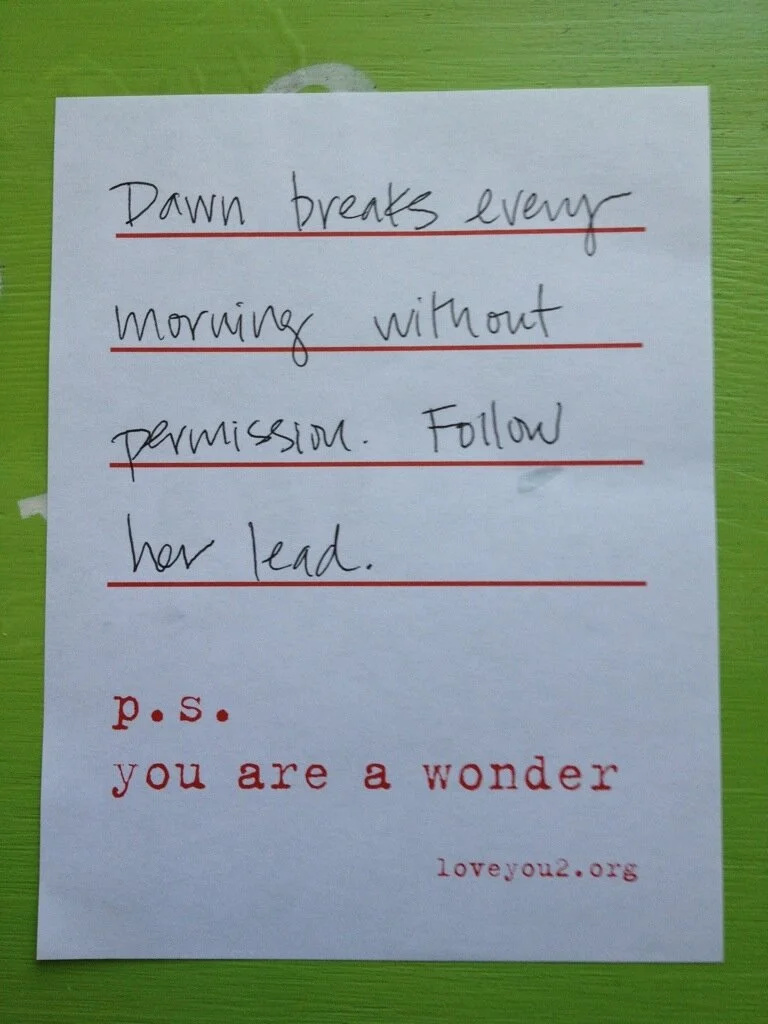 Dawn breaks every
morning without
permission. Follow
her lead.
p.s.
you are a wonder
loveyou2.org